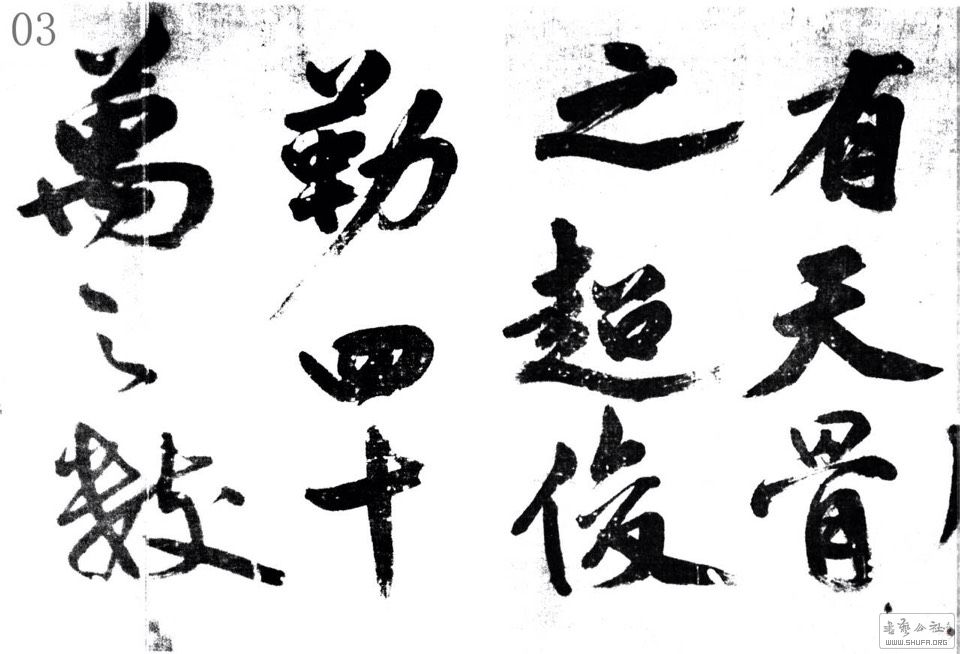 03
有天骨
之超俊
勒四十
萬之數
书艺公社
WWW.SHUFA.ORG